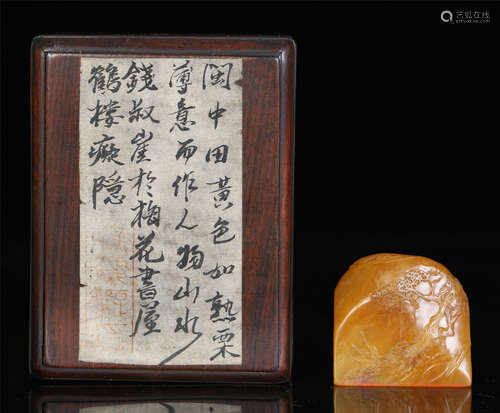 閩中田黃色如熟栗
薄意而作人物山水
錢叔崖於梅花書屋
鶴樓癡隱
艺狐在线